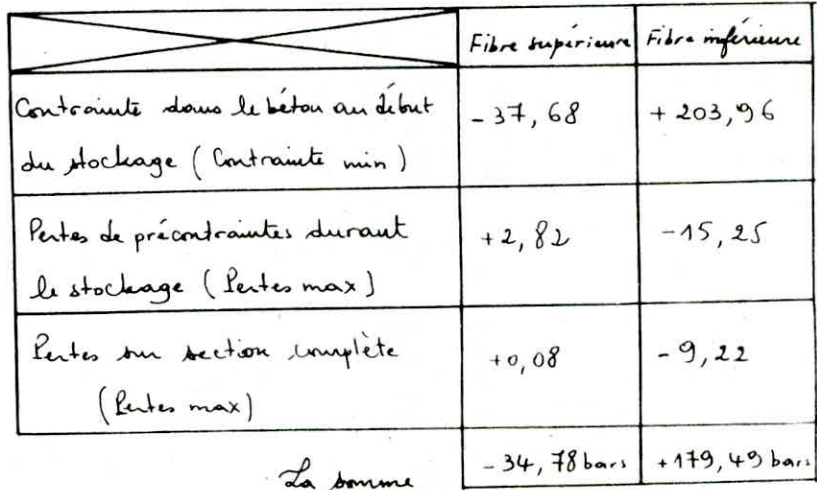 Fibre supérieure Fibre inférieure
Contrainte dans le béton au début
du stockage (Contrainte min)
-37,68 +203,96
Pertes de précontraintes durant
le stockage (Pertes max)
+2,82 -15,25
Pertes sur section complète
(Pertes max)
+0,08 -9,22
La somme -34,78 bars +179,49 bars